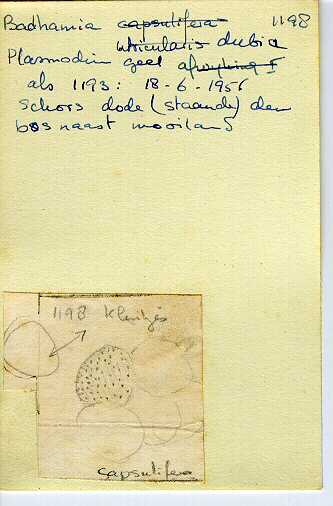 Badhamia capsulifera 1198
utricularis dubia
Plasmodium geel
als 1193: 18-6-1956
Schors dode (staande) den
bos naast mooiland
1198
capsulifera